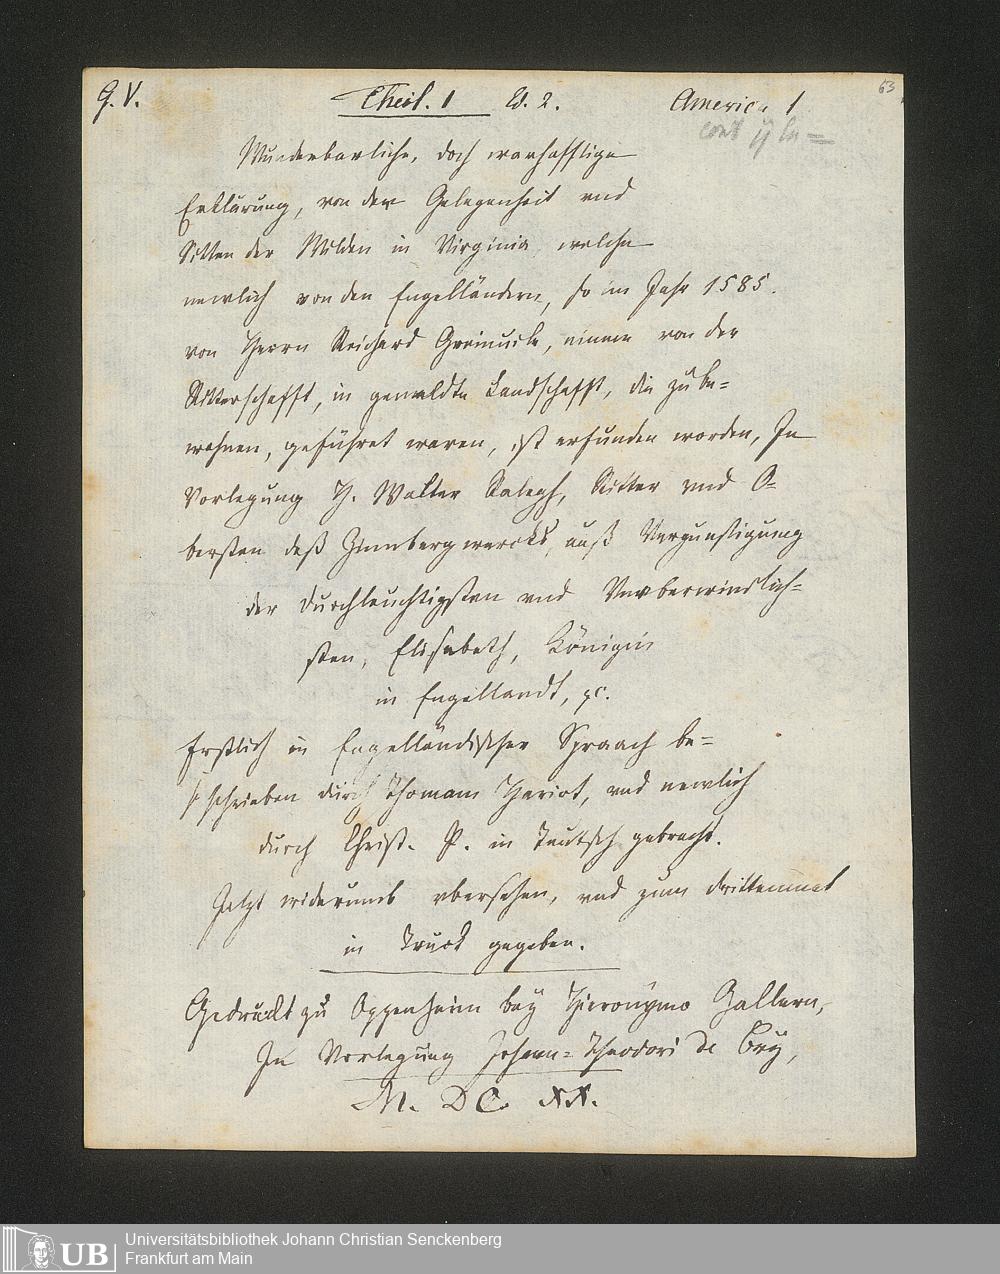 G. V. Theil. 1 Ed. 2. America 1 63
Wunderbarliche, doch warhafftige
Erklärung, von der Gelegenheit vnd
Sitten der Wilden in Virginia, welche
newlich von den Engelländern, so im Jahr 1585.
von Herrn Reichard Greinuile, einem von der
Ritterschafft, in gemeldte Landschafft, die zu be=
wohnen, geführet waren, ist erfunden worden, In
Vorlegung H. Walter Ralegh, Ritter vnd O=
bersten deß Zinnbergwercks, auß Vergünstigung
der Durchleuchtigsten vnd Vnvberwindlich=
sten, Elisabeth, Königin
in Engellandt, ꝛc.
Erstlich in Engelländischer Spraach be=
schrieben durch Thomam Hariot, vnd newlich
durch Christ. P. in Teutsch gebracht.
Jetzt widerumb vbersehen, vnd zum drittenmal
in Truck gegeben.
Gedruckt zu Oppenheim bey Hieronymo Gallern,
In Vorlegung Johann=Theodori de Bry,
M. DC. XX.
UB
Universitätsbibliothek Johann Christian Senckenberg
Frankfurt am Main